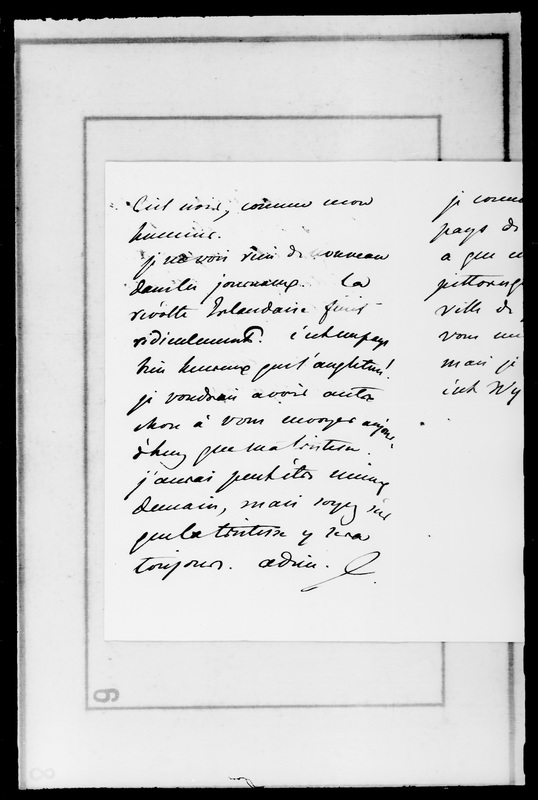 C'est noir, comme mon
humeur.
je ne vois rien de nouveau
dans les journaux. La
révolte Irlandaise finit
ridiculement. C'est un pays
bien heureux que l'angleterre!
je voudrais avoir autre
chose à vous envoyer aujour-
d'huy que ma tristesse.
j'aurai peut être mieux
demain, mais soyez sûr
que la tristesse y sera
toujours. adieu. G.
je conn
pays de
a que
pittoresq
ville de
vous
mais je
c'est Wy
6
8